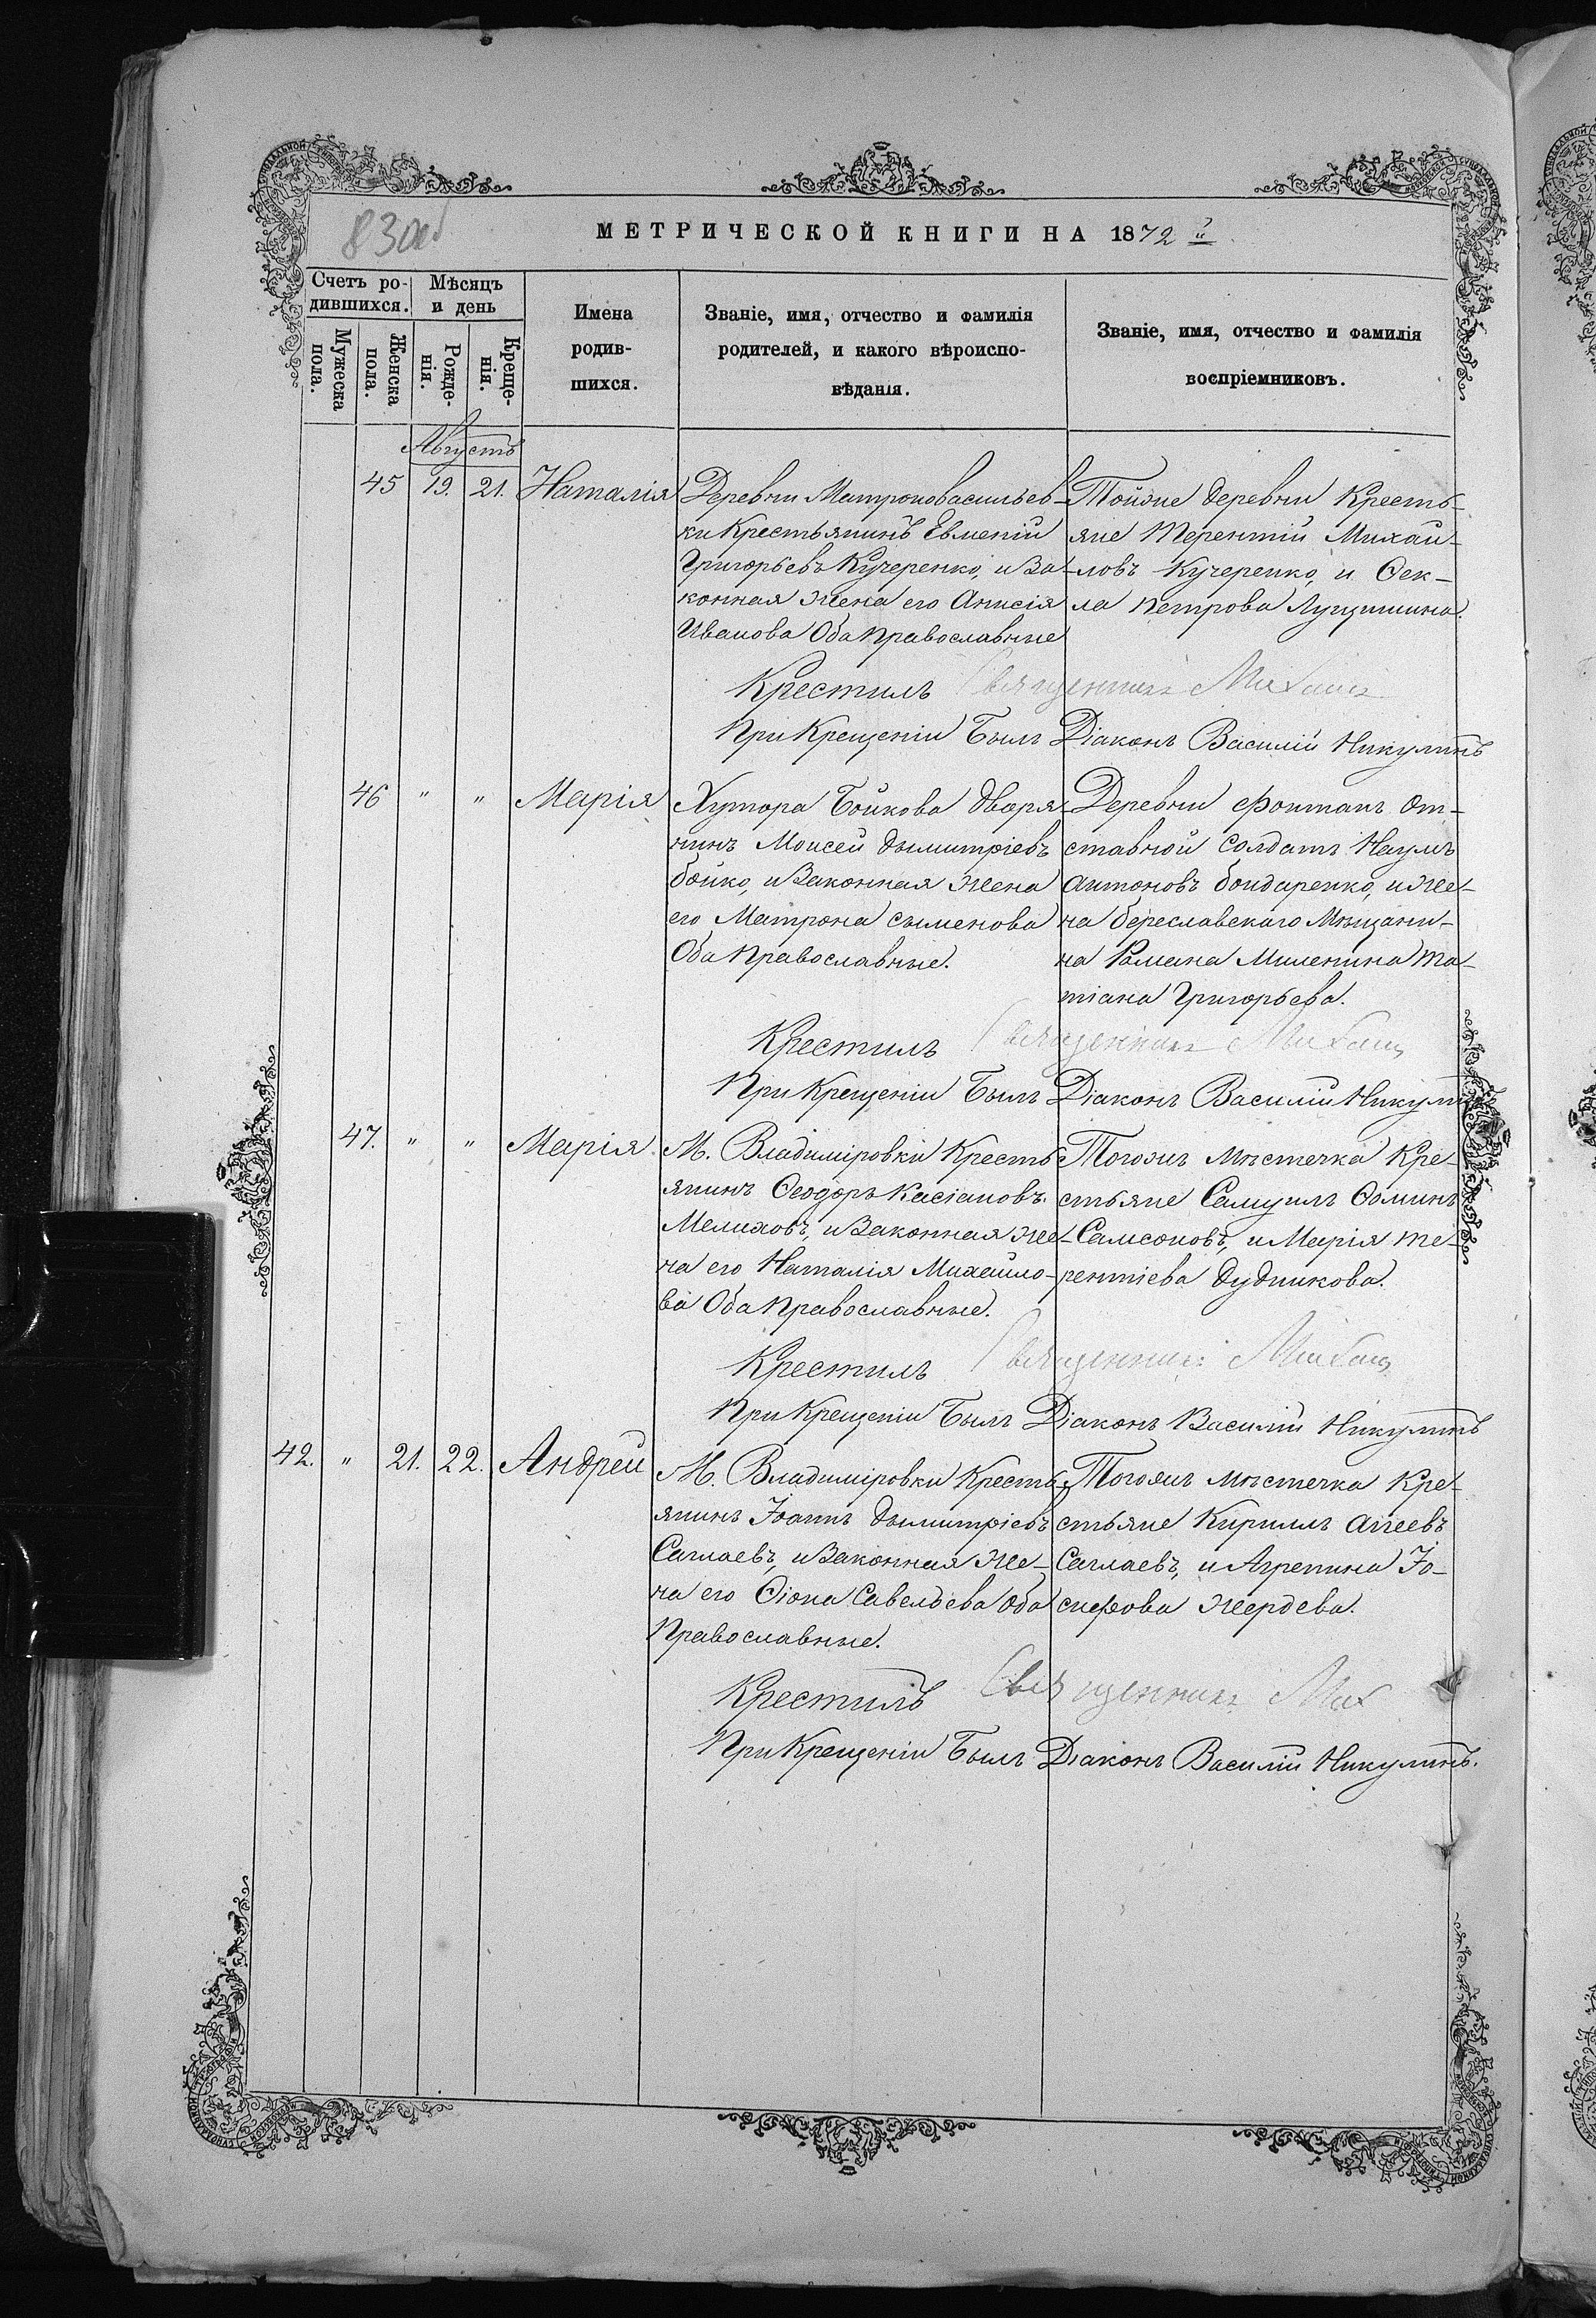 830об
МЕТРИЧЕСКОЙ КНИГИ НА 1872 й
Счетъ ро-
дившихся.
Мѣсяцъ
и день
Мужеска
пола.
Женска
пола.
Рожде-
нія.
Креще-
нія.
Имена
родив-
шихся.
Званіе, имя, отчество и фамилія
родителей, и какого вѣроиспо-
вѣданія.
Званіе, имя, отчество и фамилія
воспріемниковъ.
Августъ
45 19. 21. Наталія
Деревни Матроновасильев-
ки Крестьянинъ Евменій
Григорьевъ Кучеренко, и за-
конная жена его Анисія
Иванова Оба православные
Тойже деревни Кресть-
яне Терентій Михай-
ловъ Кучеренко, и Ѳек-
ла Петрова
Крестилъ Священникъ
При Крещеніи Былъ Діаконъ Василій Никулинъ
46 " " Марія
Хутора Бойкова дворя-
нинъ Моисей дымитріевъ
бойко, и Законная жена
его Матрона сыменова
Оба православные.
Деревни фонтанъ от-
ставной солдатъ Наумъ
антоновъ бондаренко, и же-
на береславскаго Мѣщани-
на Романа Миленина Та-
тіана Григорьева.
Крестилъ Священникъ
При Крещеніи Былъ Діаконъ Василій Никулинъ
47. " " Марія
М. Владиміровки Кресть-
янинъ Ѳеодоръ Касіановъ
Мелиховъ, и Законная же-
на его Наталія Михайло-
ва Оба православные.
Тогожъ мѣстечка Кре-
стьяне Самуилъ Ѳоминъ
Самсоновъ, и Марія Те-
рентіева дудникова.
Крестилъ Священникъ
При Крещеніи Былъ Діаконъ Василій Никулинъ
42. " 21. 22. Андрей
М. Владиміровки Кресть-
янинъ Іоаннъ дымитріевъ
Саглаевъ, и Законная же-
на его Ѳіона Савельева оба
Православные.
Тогожъ мѣстечка Кре-
стьяне Кирилъ аггеевъ
Саглаевъ, и Агрепина Іо-
сифова жердева.
Крестилъ Священникъ Мих
При Крещеніи Былъ Діаконъ Василій Никулинъ.